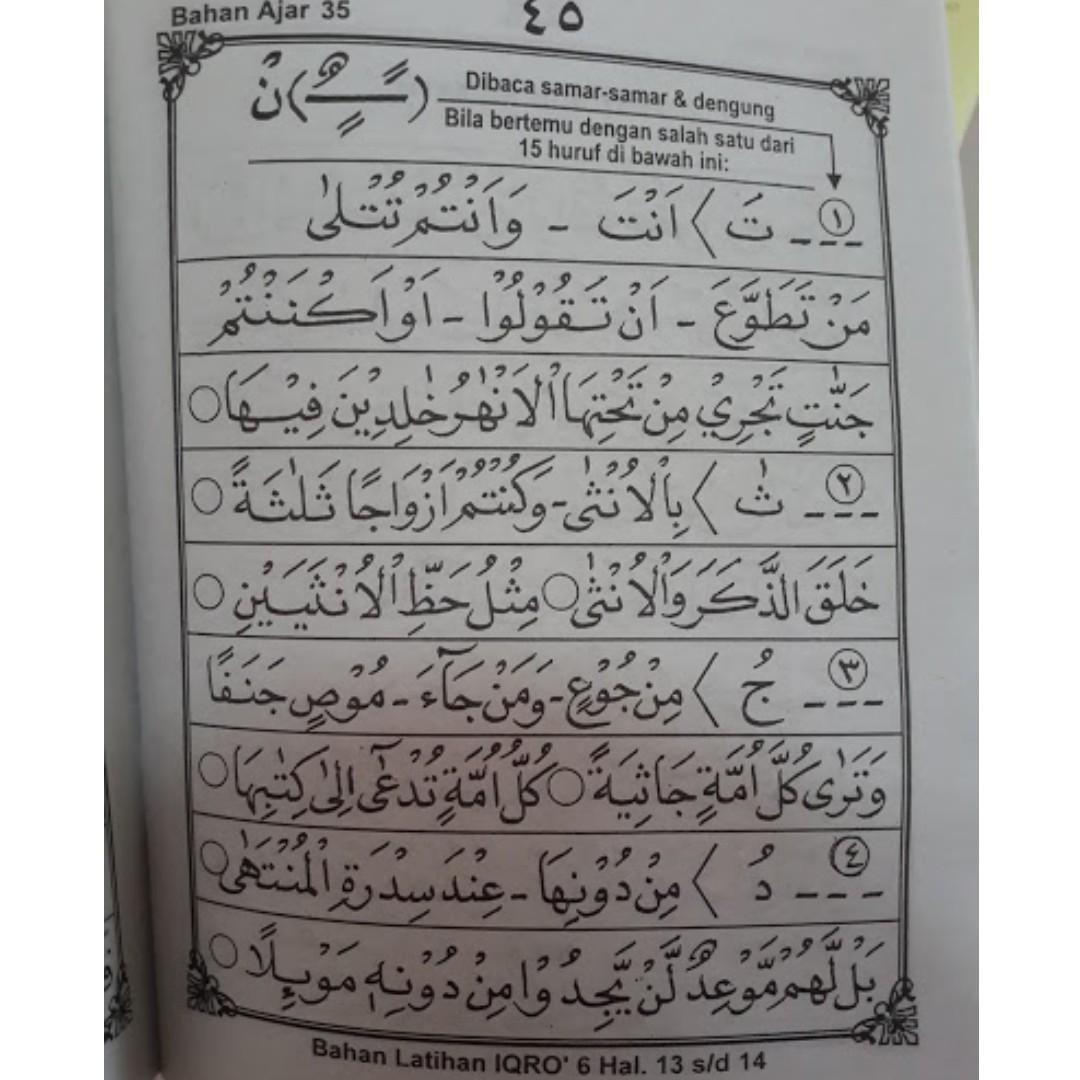 Bahan Ajar 35
٤٥
نْ (ـًـٍـٌ)
Dibaca samar-samar & dengung
Bila bertemu dengan salah satu dari
15 huruf di bawah ini:
١ --- تَ 〉 اَنْتَ - وَاَنْتُمْ تُتْلٰى
مَنْ تَطَوَّعَ - اَنْ تَقُوْلُوْا - اَوْاَكْنَنْتُمْ
جَنّٰتٍ تَجْرِيْ مِنْ تَحْتِهَا الْاَنْهٰرُ خٰلِدِيْنَ فِيْهَا ○
٢ --- ثٰ 〉 بِالْاُنْثٰى - وَكُنْتُمْ اَزْوَاجًا ثَلٰثَةً ○
خَلَقَ الذَّكَرَ وَالْاُنْثٰى ○ مِثْلُ حَظِّ الْاُنْثَيَيْنِ ○
٣ --- جُ 〉 مِنْ جُوْعٍ - وَمَنْ جَآءَ - مُوْصٍ جَنَفًا
وَتَرٰى كُلَّ اُمَّةٍ جَاثِيَةً ○ كُلُّ اُمَّةٍ تُدْعٰٓى اِلٰى كِتٰبِهَا ○
٤ --- دُ 〉 مِنْ دُوْنِهَا - عِنْدَ سِدْرَةِ الْمُنْتَهٰى ○
بَلْ لَّهُمْ مَّوْعِدٌ لَّنْ يَّجِدُوْا مِنْ دُوْنِهٖ مَوْىِٕلًا ○
Bahan Latihan IQRO' 6 Hal. 13 s/d 14